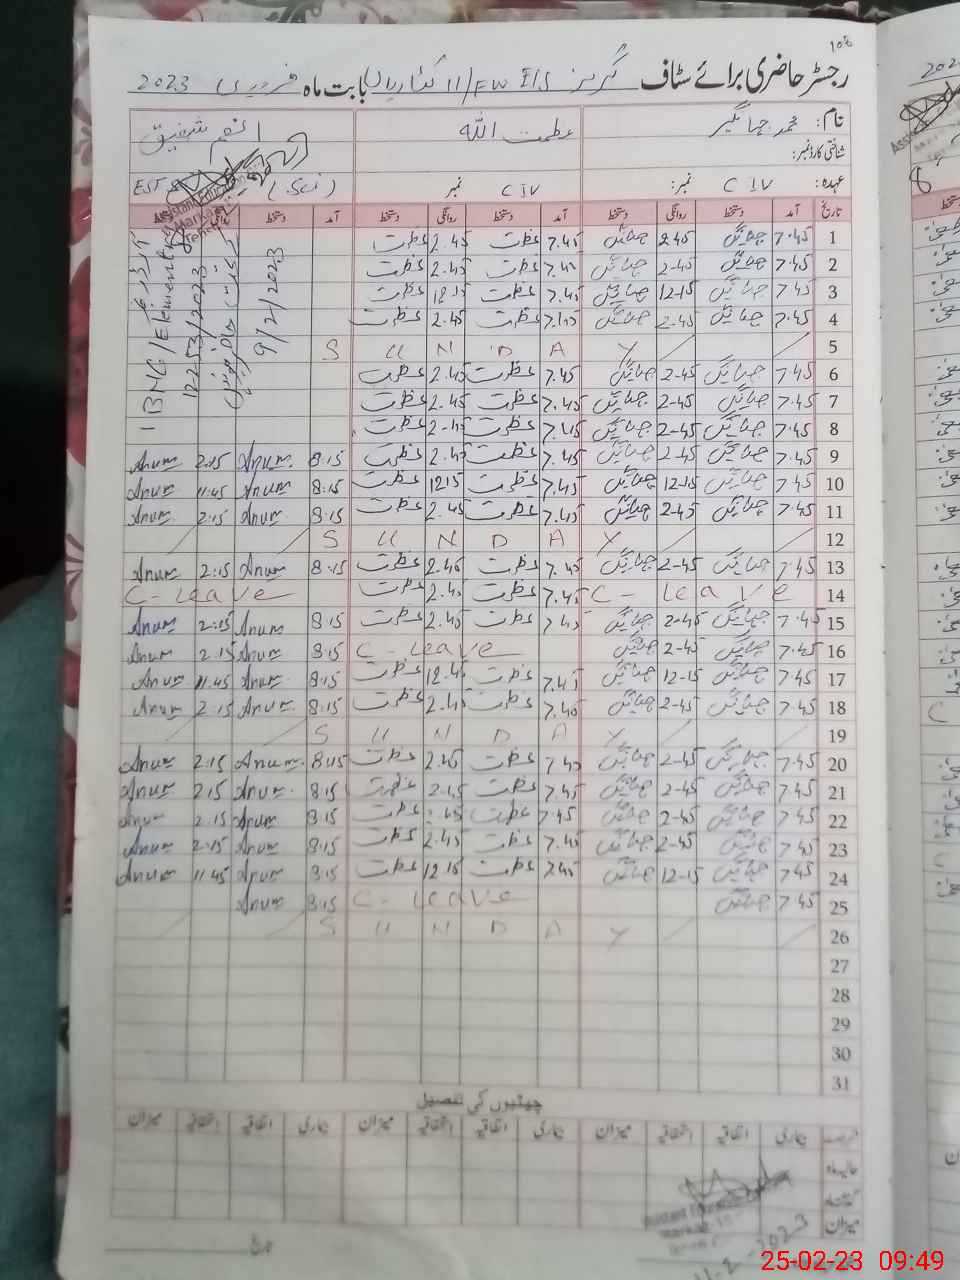 رجسٹر حاضری برائے سٹاف گرلز بابت ماہ فروری 2023
نام: محمد جہانگیر عظمت اللہ انعم شفیق
شناختی کارڈ نمبر:
عہدہ: C IV نمبر: C IV نمبر (Sci) EST
Assistant Education
Markaz
تاریخ آمد دستخط روانگی دستخط آمد دستخط روانگی دستخط آمد دستخط
12253/2023
9/2/2023
1 7.45 جہانگیر 2.45 جہانگیر 7.45 عظمت 2.45 عظمت
2 7.45 جہانگیر 2-45 جہانگیر 7.45 عظمت 2.45 عظمت
3 7.45 جہانگیر 12-15 جہانگیر 7.45 عظمت 12.15 عظمت
4 7.45 جہانگیر 2-45 جہانگیر 7.45 عظمت 2.45 عظمت
5 S U N D A Y
6 7.45 جہانگیر 2-45 جہانگیر 7.45 عظمت 2.45 عظمت
7 7.45 جہانگیر 2-45 جہانگیر 7.45 عظمت 2.45 عظمت
8 7.45 جہانگیر 2-45 جہانگیر 7.45 عظمت 2.45 عظمت
9 7.45 جہانگیر 2-45 جہانگیر 7.45 عظمت 2.45 عظمت 8:15 Anum 2:15 Anum
10 7.45 جہانگیر 12-15 جہانگیر 7.45 عظمت 12.15 عظمت 8:15 Anum 11:45 Anum
11 7.45 جہانگیر 2-45 جہانگیر 7.45 عظمت 2.45 عظمت 8:15 Anum 2:15 Anum
12 S U N D A Y
13 7.45 جہانگیر 2-45 جہانگیر 7.45 عظمت 2.45 عظمت 8:15 Anum 2:15 Anum
14 C- leave 7.45 عظمت 2.45 عظمت C- leave
15 7.45 جہانگیر 2-45 جہانگیر 7.45 عظمت 2.45 عظمت 8:15 Anum 2:15 Anum
16 7.45 جہانگیر 2-45 جہانگیر C- leave 8:15 Anum 2:15 Anum
17 7.45 جہانگیر 12-15 جہانگیر 7.45 عظمت عظمت 8:15 Anum 11:45 Anum
18 7.45 جہانگیر 2-45 جہانگیر 7.45 عظمت 2.45 عظمت 8:15 Anum 2:15 Anum
19 S U N D A Y
20 7.45 جہانگیر 2-45 جہانگیر 7.45 عظمت 2.45 عظمت 8:15 Anum 2:15 Anum
21 7.45 جہانگیر 2-45 جہانگیر 7.45 عظمت 2.45 عظمت 8:15 Anum 2:15 Anum
22 7.45 جہانگیر 2-45 جہانگیر 7.45 عظمت 2.45 عظمت 8:15 Anum 2:15 Anum
23 7.45 جہانگیر 2-45 جہانگیر 7.45 عظمت 2.45 عظمت 8:15 Anum 2:15 Anum
24 7.45 جہانگیر 12-15 جہانگیر 7.45 عظمت 12.15 عظمت 8:15 Anum 11:45 Anum
25 7.45 جہانگیر C- leave 8:15 Anum
26 S U N D A Y
27
28
29
30
31
چھٹیوں کی تفصیل
بیماری اتفاقیہ استحقاقیہ میزان بیماری اتفاقیہ استحقاقیہ میزان بیماری اتفاقیہ استحقاقیہ میزان
میزان
25-02-23 09:49